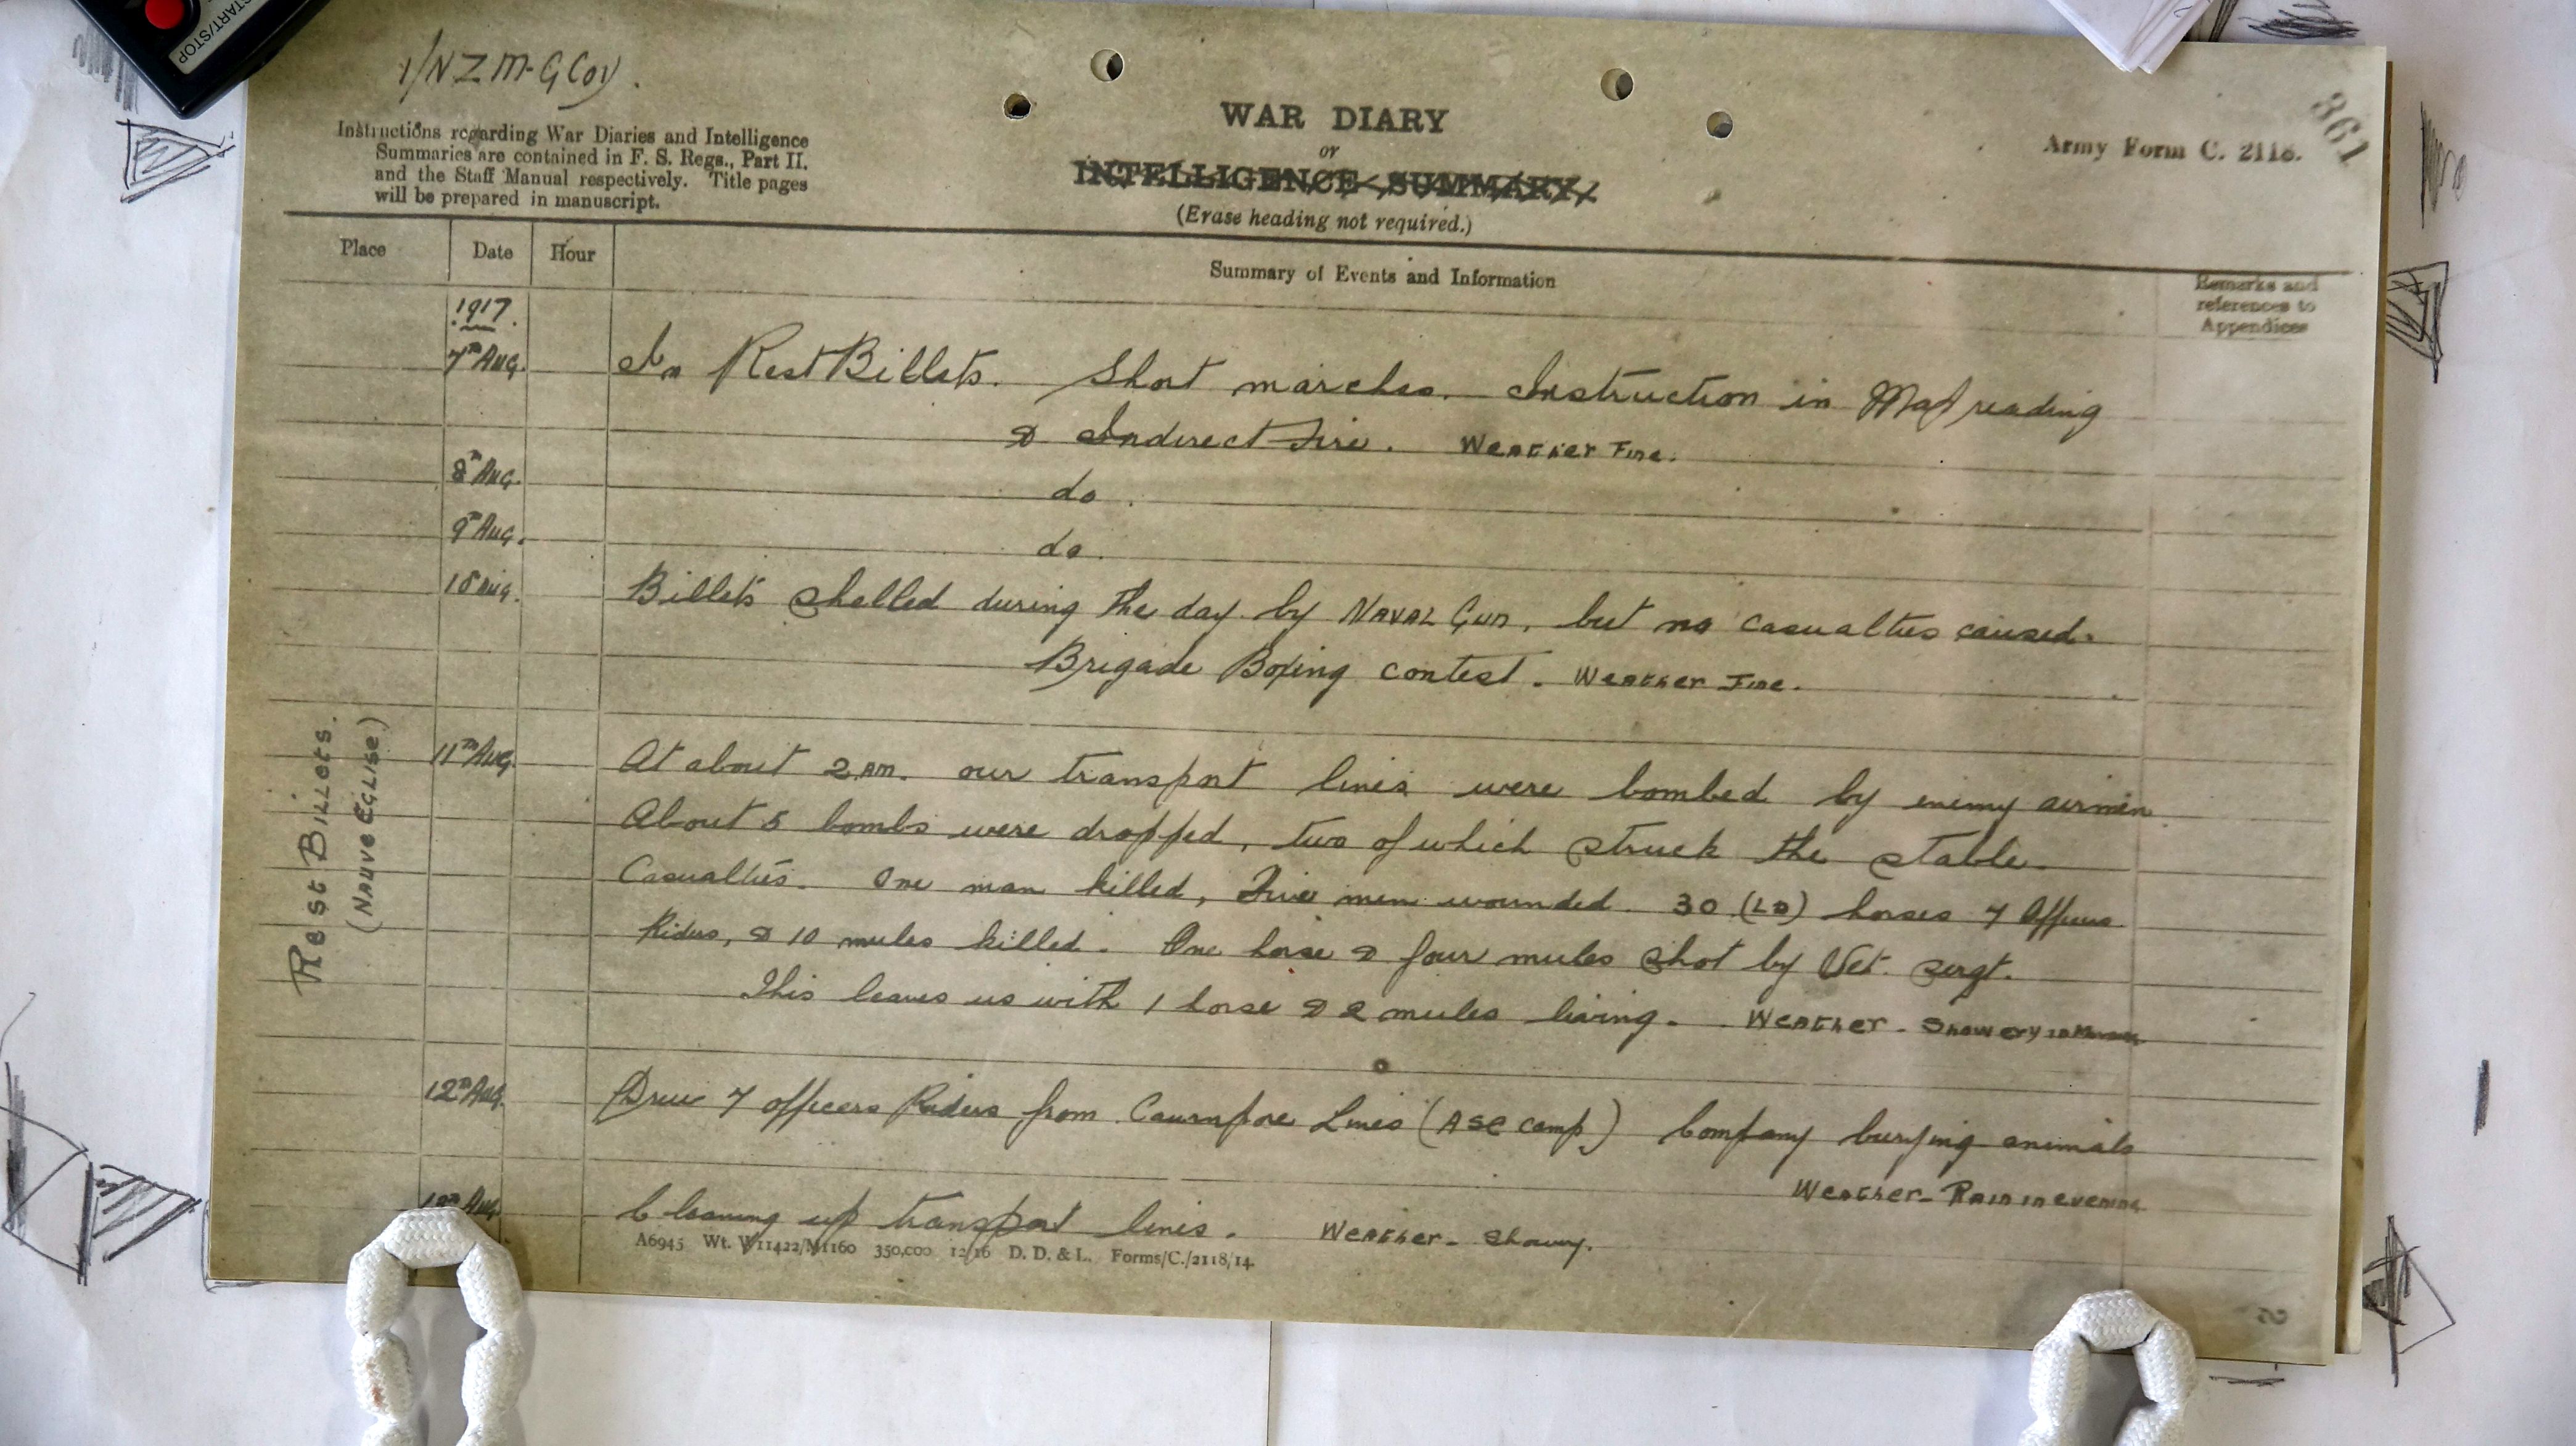 START/STOP
1/N Z M-G Coy.
861
Instructions regarding War Diaries and Intelligence
Summaries are contained in F. S. Regs., Part II.
and the Staff Manual respectively. Title pages
will be prepared in manuscript.
WAR DIARY
or
INTELLIGENCE SUMMARY.
(Erase heading not required.)
Army Form C. 2118.
Place Date Hour Summary of Events and Information Remarks and
references to
Appendices
Rest Billets.
(Nauve Eglise.)
1917.
7th Aug. In Rest Billets. Short marches. Instruction in Map reading
& Indirect Fire. Weather Fine.
8th Aug. do.
9th Aug. do.
10 Aug. Billets shelled during the day by Naval Gun, but no casualties caused.
Brigade Boxing contest. Weather Fine.
11th Aug. At about 2 am. our transport lines were bombed by enemy airmen
About 5 bombs were dropped, two of which struck the stable.
Casualties. One man killed, Five men wounded. 30 (LD) horses 7 Officers
Riders, & 10 mules killed. One horse & four mules shot by Vet. sergt.
This leaves us with 1 horse & 2 mules living. Weather - Showery in
12th Aug. Drew 7 officers Riders from Cawnpore Lines (ASC Camp) Company burying animals
Weather - Rain in evening
Aug. Cleaning up transport lines. Weather - Showery.
A6945 Wt. W11422/M1160 350,000 12/16 D. D. & L. Forms/C./2118/14.